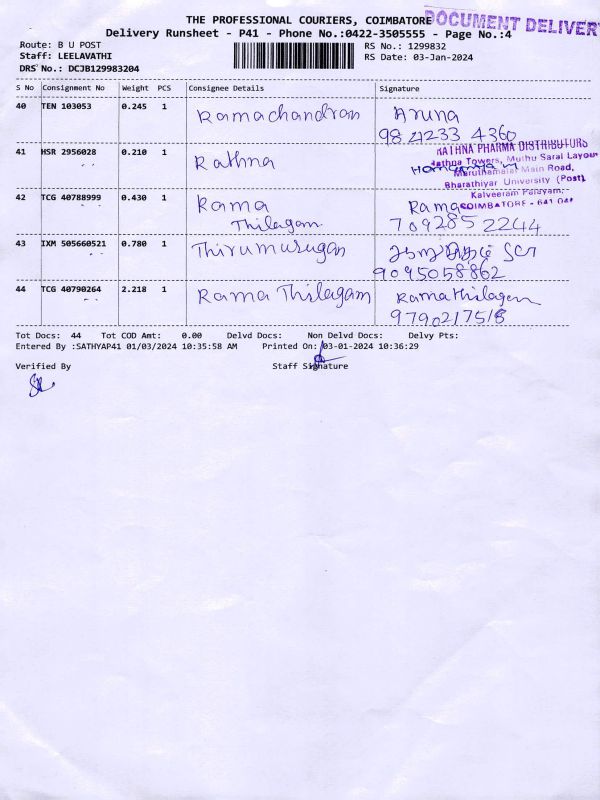 THE PROFESSIONAL COURIERS, COIMBATORE
DOCUMENT DELIVERY
Delivery Runsheet - P41 - Phone No.:0422-3505555 - Page No.:4
Route: B U POST
RS No.: 1299832
Staff: LEELAVATHI
RS Date: 03-Jan-2024
DRS No.: DCJB129983204
S No Consignment No Weight PCS Consignee Details Signature
40 TEN 103053 0.245 1 Ramachandran Aruna
41 HSR 2956028 0.210 1 Rathna
RATHNA PHARMA DISTRIBUTORS
Rathna Towers, Muthu Sarai Layout
Maruthamalai Main Road,
Bharathiyar University (Post)
Kalveeram Palayam,
COIMBATORE - 641 046
42 TCG 40788999 0.430 1 Rama Thilagam Rama
709285 2244
43 IXM 505660521 0.780 1 Thirumurugan
9095058862
44 TCG 40790264 2.218 1 Rama Thilagam Ramathilagam
9790217518
Tot Docs: 44 Tot COD Amt: 0.00 Delvd Docs: Non Delvd Docs: Delvy Pts:
Entered By :SATHYAP41 01/03/2024 10:35:58 AM Printed On: 03-01-2024 10:36:29
Verified By Staff Signature